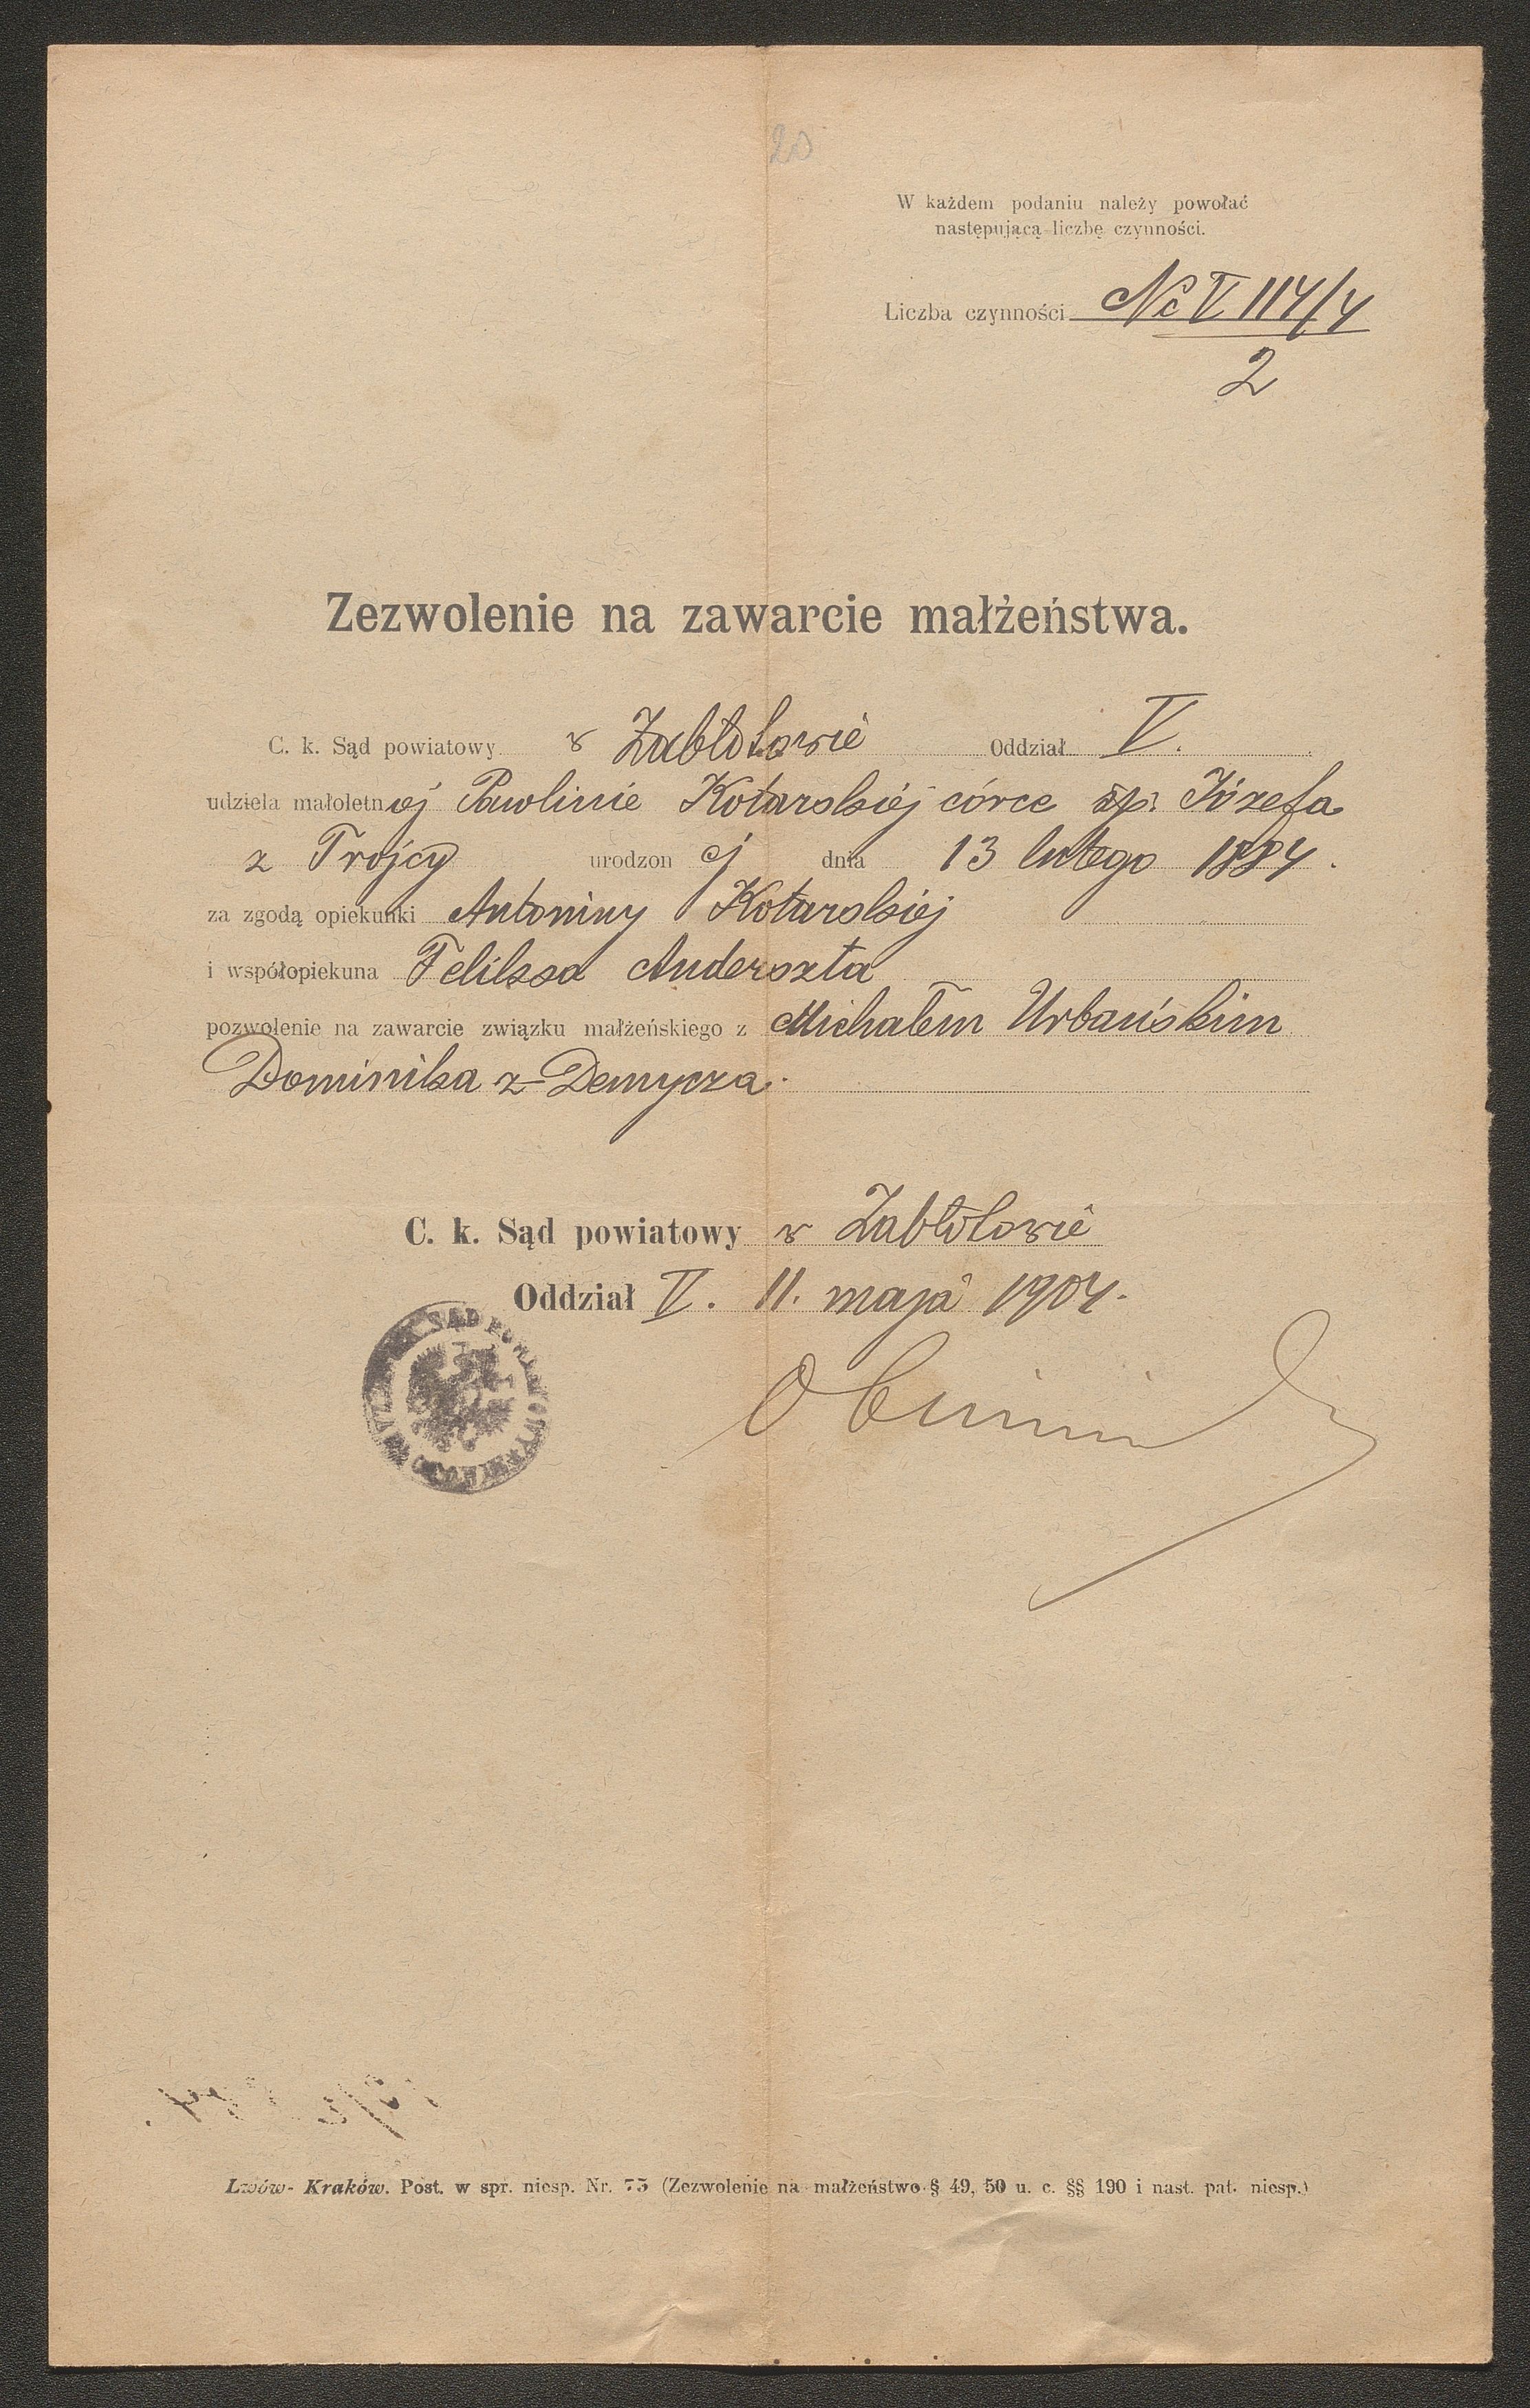 20
W każdem podaniu należy powołać
następującą liczbę czynności.
Liczba czynności Nc V 114/4
2
Zezwolenie na zawarcie małżeństwa.
C. k. Sąd powiatowy w Zabłotowie Oddział V.
udziela małoletniej Pawlinie Kotarskiej córce śp. Józefa
z Trójcy urodzonej dnia 13 lutego 1884.
za zgodą opiekunki Antoniny Kotarskiej
i współopiekuna Feliksa Anderszta
pozwolenie na zawarcie związku małżeńskiego z Michałem Urbańskim
Dominika z Demycza.
C. k. Sąd powiatowy w Zabłotowie
Oddział V. 11. maja 1904.
Lwów- Kraków. Post. w spr. niesp. Nr. 75 (Zezwolenie na małżeństwo § 49, 50 u. c. §§ 190 i nast. pat. niesp.)